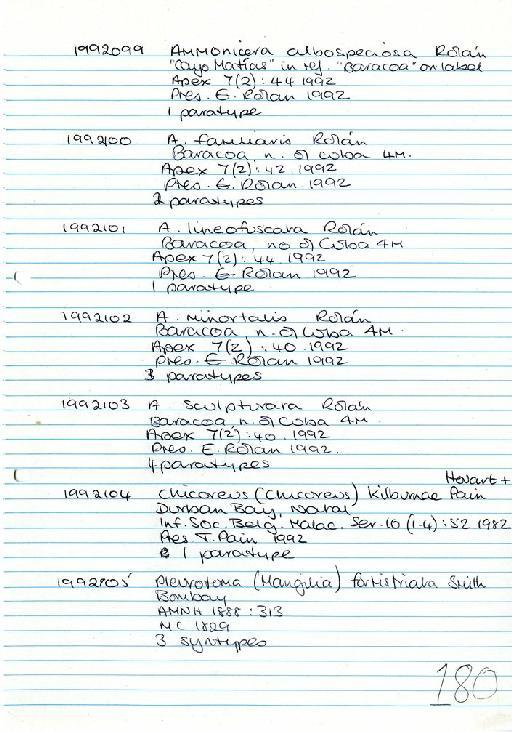 1992099 Ammonicera albospeciosa Rolán
"Cayo Matías" in ref. "Baracoa" on label
Apex 7(2): 44 1992
Pres. E. Rolan 1992
1 paratype
1992100 A. familiaris Rolán
Baracoa, n. of Cuba 4M.
Apex 7(2): 42 1992
Pres. E. Rolan 1992
2 paratypes
1992101 A. lineofuscata Rolán
Baracoa, no of Cuba 4M
Apex 7(2): 44 1992
Pres. E. Rolan 1992
1 paratype
1992102 A. minortalis Rolán
Baracoa, n. of Cuba 4M.
Apex 7(2): 40 1992
Pres. E. Rolan 1992
3 paratypes
1992103 A sculpturata Rolán
Baracoa, n. of Cuba 4M.
Apex 7(2): 40. 1992
Pres. E. Rolan 1992.
4 paratypes
Houart +
1992104 Chicoreus (Chicoreus) kilburnae Pain
Durban Bay, Natal
Inf. Soc. Belg. Malac. Ser. 10 (1-4): 52 1982
Pres T. Pain 1992
1 paratype
1992105 Pleurotoma (Mangilia) fortistriata Smith
Bombay
AMNH 1888: 313
MC 1829
3 syntypes
180